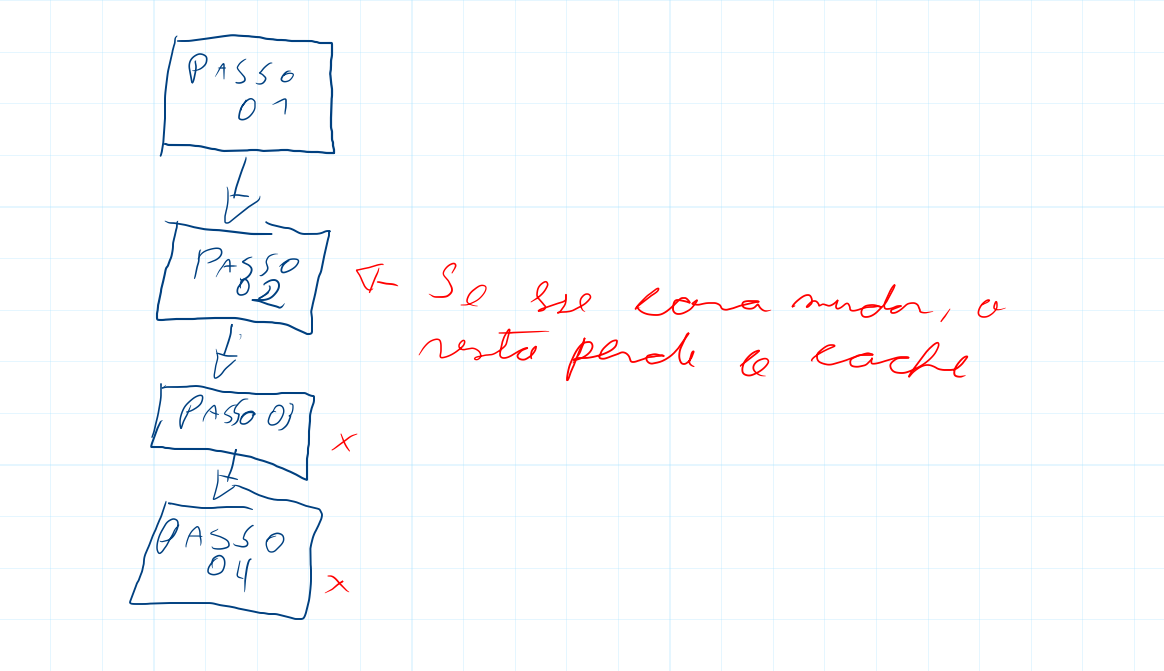 PASSO
01
PASSO
02
Se esse cara mudar, o
resto perde o cache
PASSO 03
x
PASSO
04
x